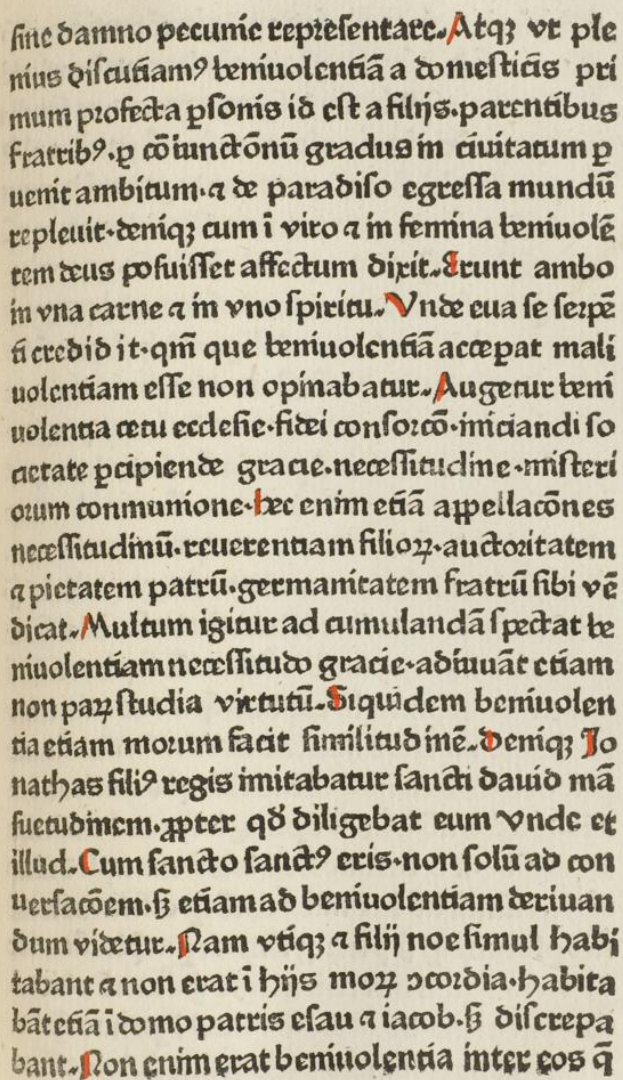 sine damno pecunie representare. Atqꝫ vt ple
nius discutiamꝰ beniuolentiā a domesticis pri
mum profecta ꝑsonis id est a filijs. parentibus
fratribꝰ. ꝑ cōiunctōnū gradus in ciuitatum ꝑ
uenit ambitum. ⁊ de paradiso egressa mundū
repleuit. deniqꝫ cum ī viro ⁊ in femina beniuolē
tem deus posuisset affectum dixit. Erunt ambo
in vna carne ⁊ in vno spiritu. Vnde eua se serpē
ti credidit. qm̄ que beniuolentiā acceperat mali
uolentiam esse non opinabatur. Augetur beni
uolentia cetu ecclesie. fidei consorcō. iniciandi so
cietate ꝑcipiende gracie. necessitudine. misteri
orum conmunione. hec enim etiā appellacōnes
necessitudinū. reuerentiam filioꝝ. auctoritatem
⁊ pietatem patrū. germanitatem fratrū sibi vē
dicat. Multum igitur ad cumulandā spectat be
niuolentiam necessitudo gracie. adiuuāt etiam
non paꝝ studia virtutū. Siquidem beniuolen
tia etiam morum facit similitudinē. Deniqꝫ Jo
nathas filiꝰ regis imitabatur sancti dauid mā
suetudinem. ꝓpter qd̄ diligebat eum Vnde et
illud. Cum sancto sanctꝰ eris. non solū ad con
uersacōem. sꝫ etiam ad beniuolentiam deriuan
dum videtur. Nam vtiqꝫ ⁊ filij noe simul habi
tabant ⁊ non erat ī hijs moꝝ ↄcordia. habita
bāt etiā ī domo patris esau ⁊ iacob. sꝫ discrepa
bant. Non enim erat beniuolentia inter eos q̄